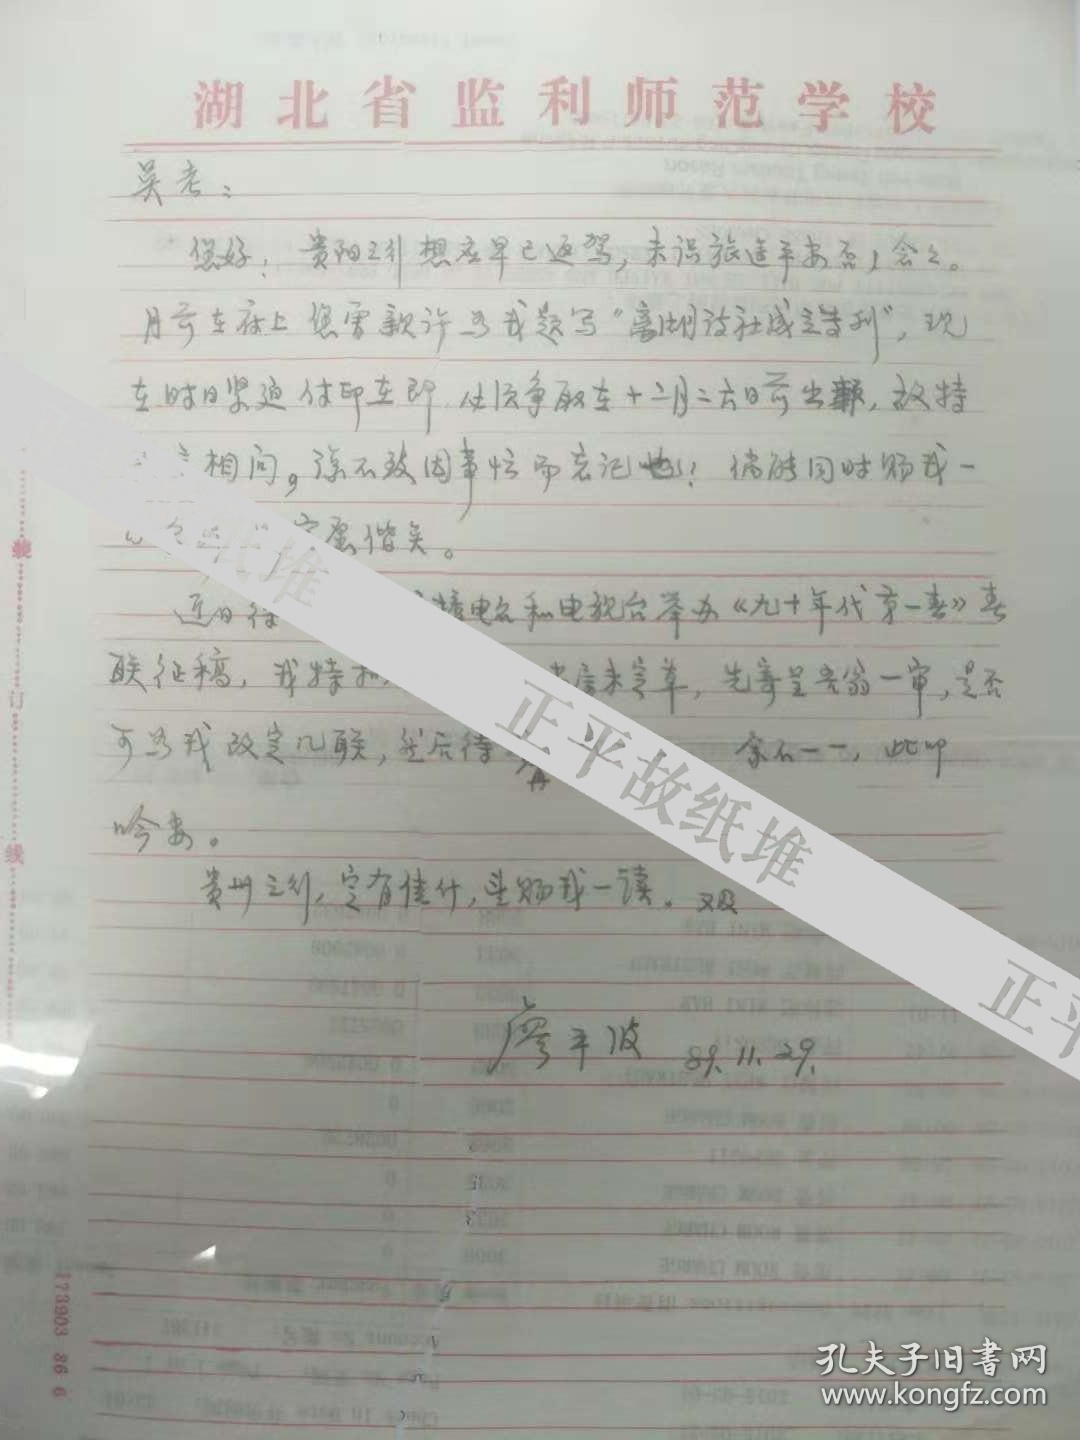 湖北省监利师范学校
吴老：
您好！贵阳之行想应早已返驾，未识旅途平安否？念念。
月前在府上您曾欵许为我题写“离湖诗社成立专刊”，现
在时日紧迫付印在即，必须争取在十二月二六日前出，故特
相问。该不致因事忙而忘记也！倘能同时赐我一
偕矣。
近日
播电台和电视台举办《九十年代第一春》春
联征稿，我特
未定草，先寄呈吾翁一审，是否
可为我改定几联，然后待
再
余不一一，此叩
吟安。
贵州之行，定有佳什，望赐我一读。又及
廖平波 89.11.29.
装
订
线
173903 86.6
正平故纸堆
正平故纸堆
孔夫子旧书网
www.kongfz.com